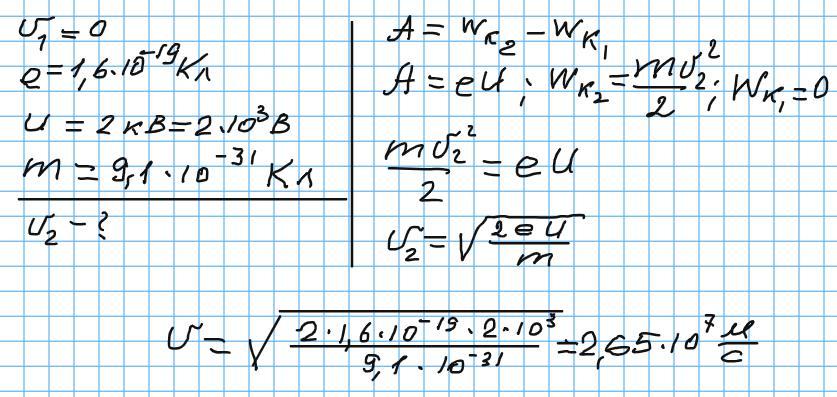 υ₁ = 0
e = 1,6·10⁻¹⁹ Кл
U = 2 кВ = 2·10³ В
m = 9,1·10⁻³¹ Кл
υ₂ - ?
A = Wк₂ - Wк₁
A = eU ; Wк₂ = mυ₂²/2 ; Wк₁ = 0
mυ₂²/2 = eU
υ₂ = √(2eU/m)
υ = √(2·1,6·10⁻¹⁹·2·10³/9,1·10⁻³¹) = 2,65·10⁷ м/с